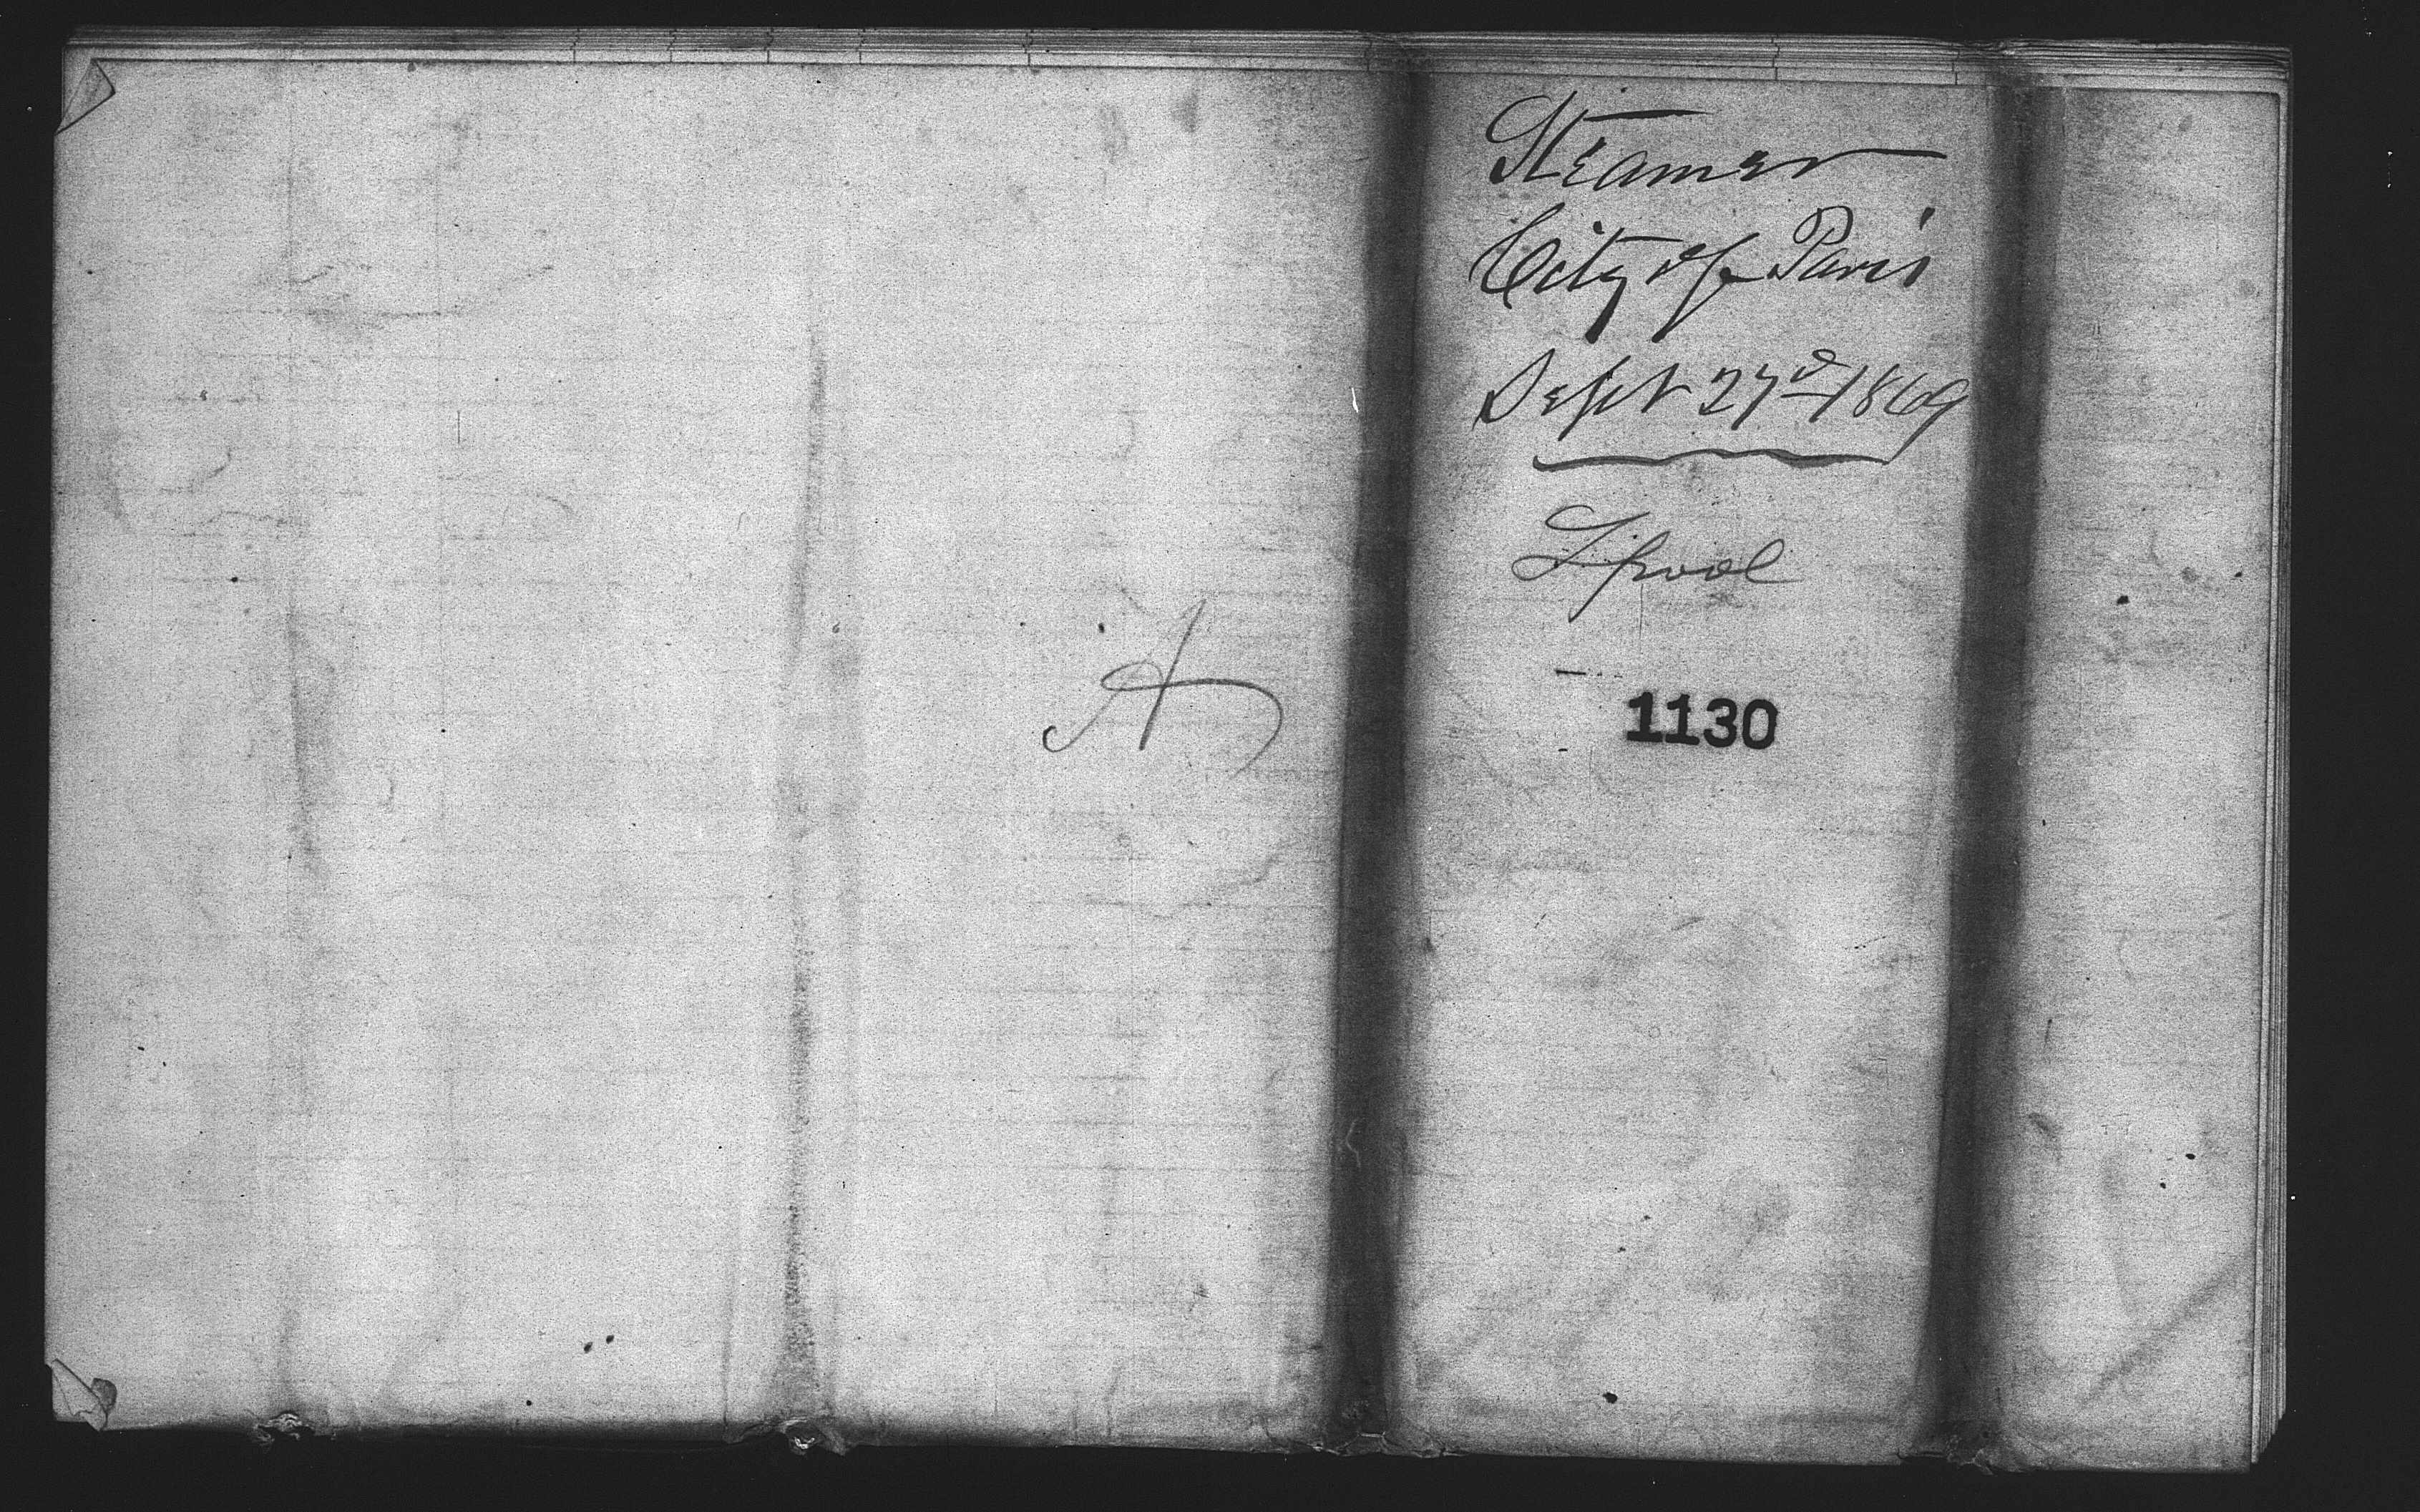 Steamer
City of Paris
Sept 27d 1869
Lpool
A
1130